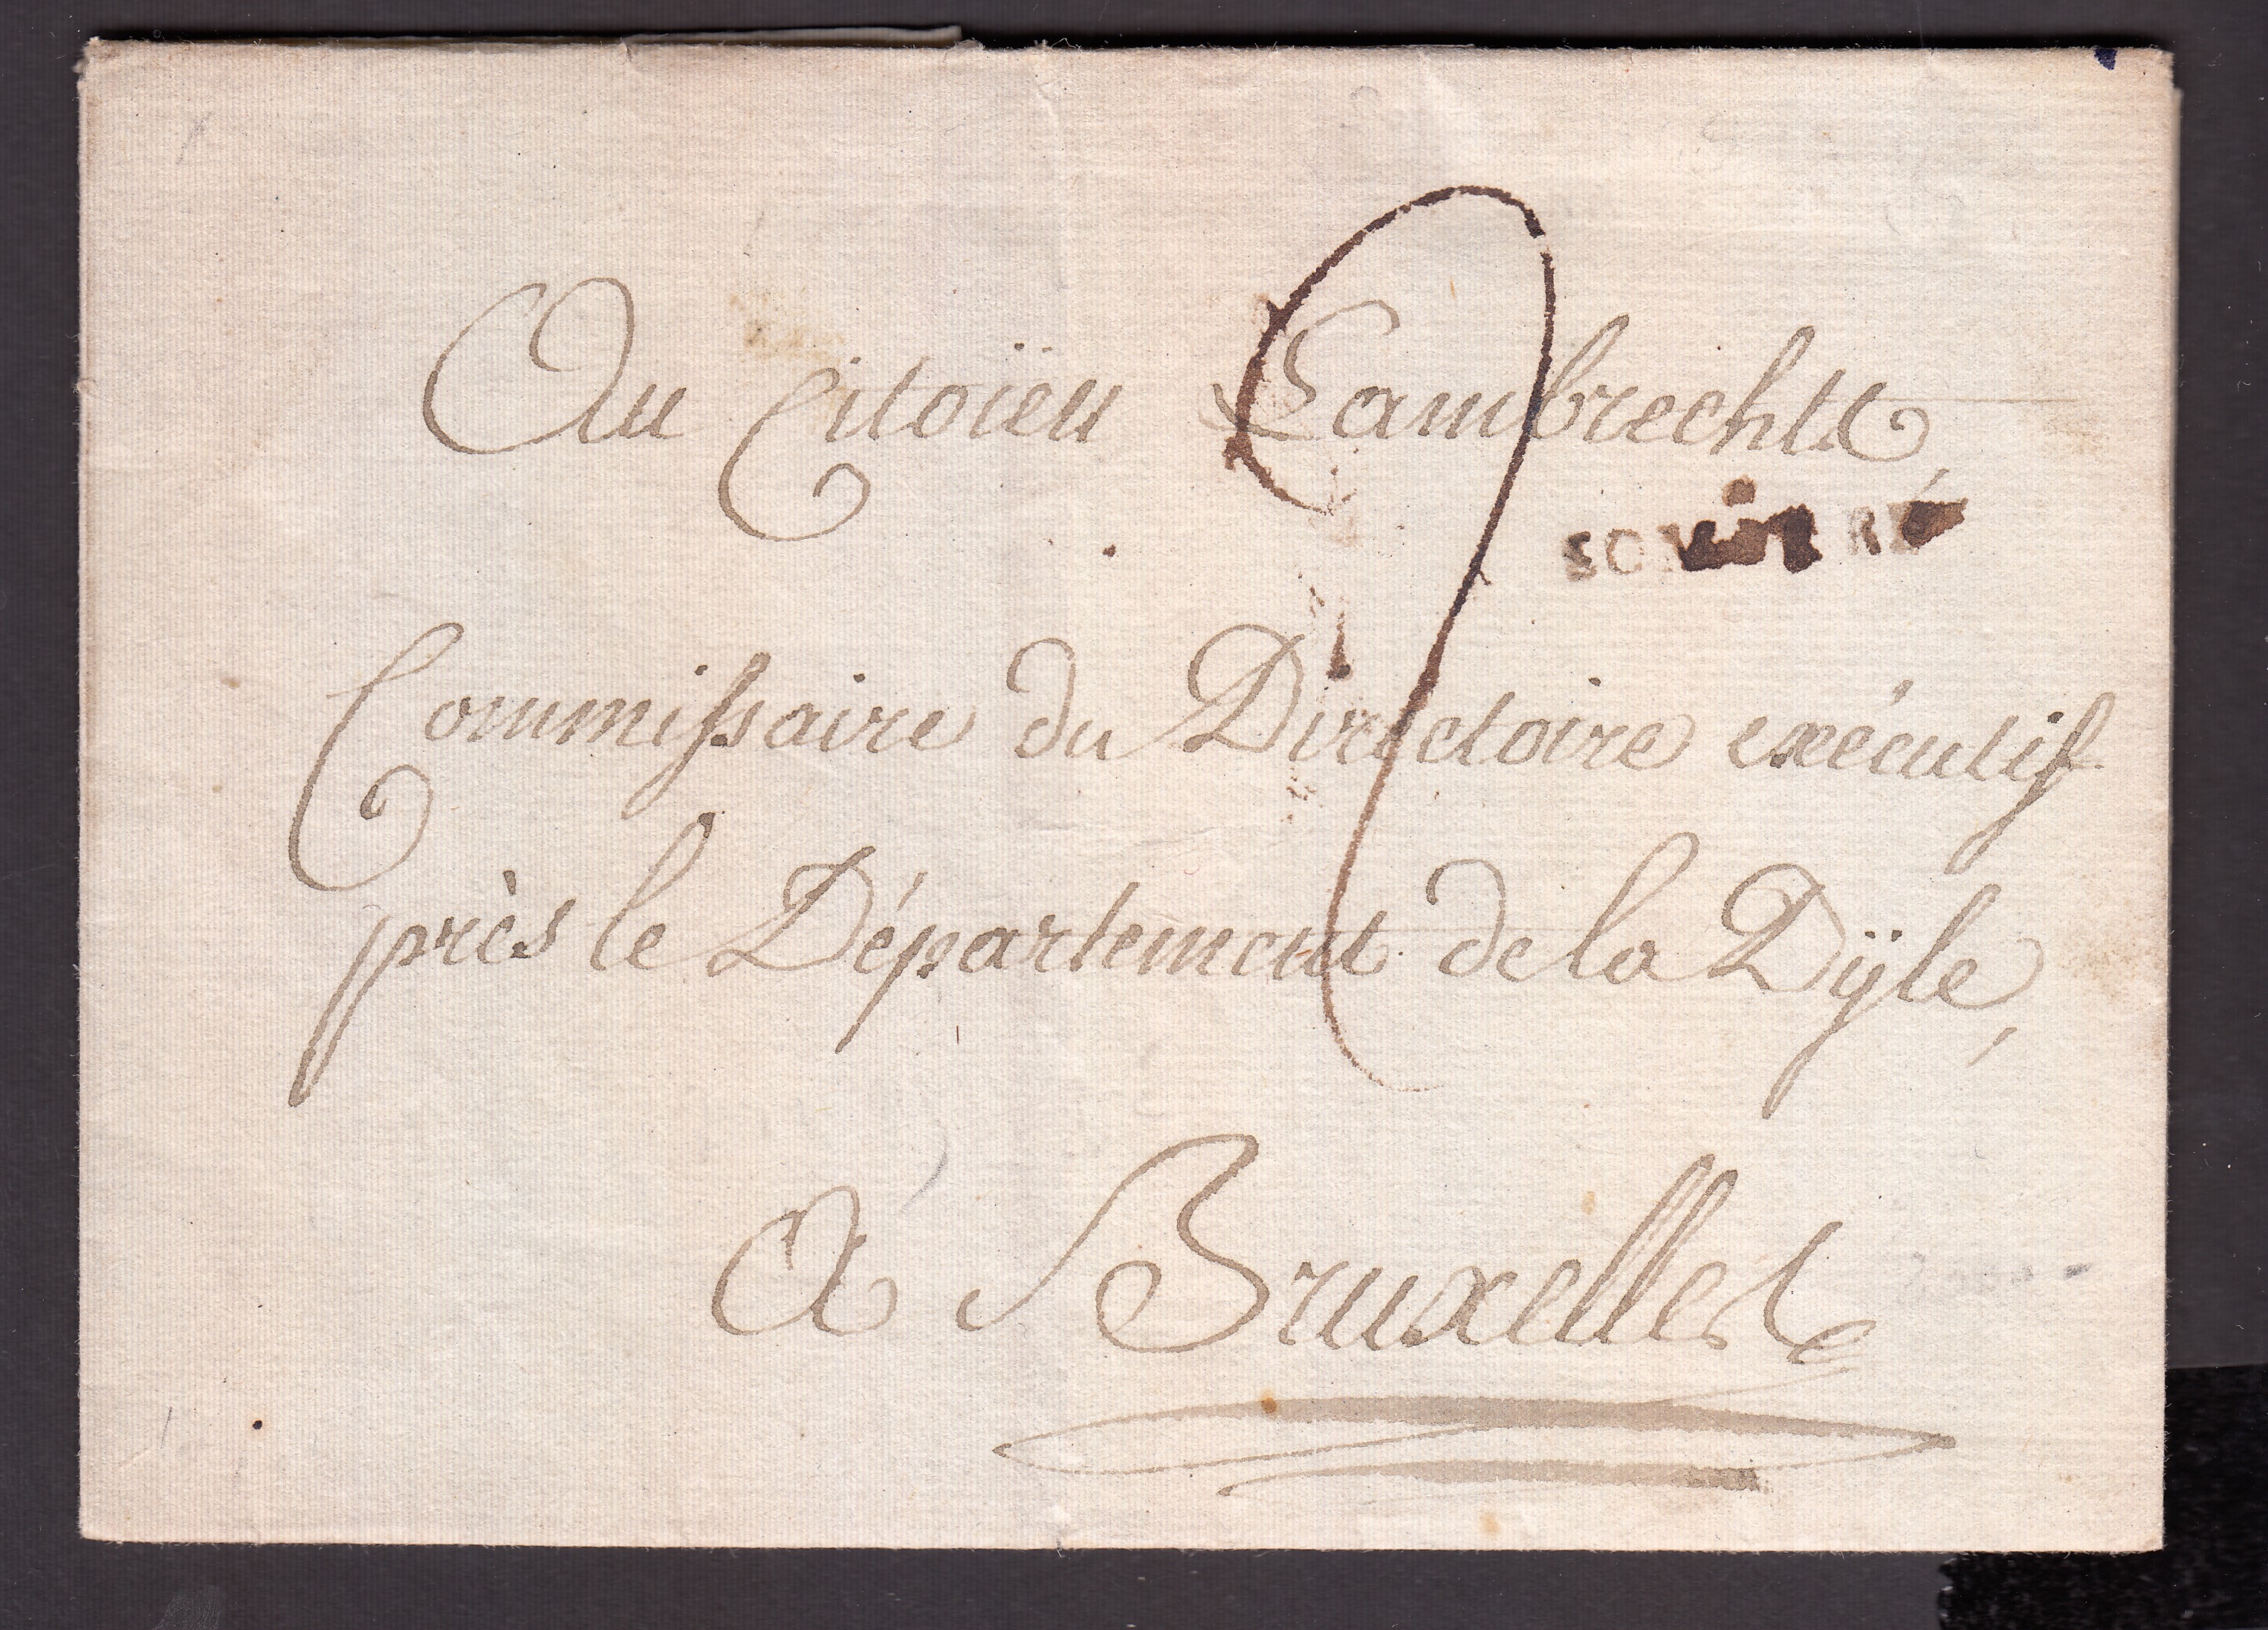 Au Citoïen Lambrechts,
Commissaire du Directoire exécutif
près le Département de la Dÿle,
A Bruxelles